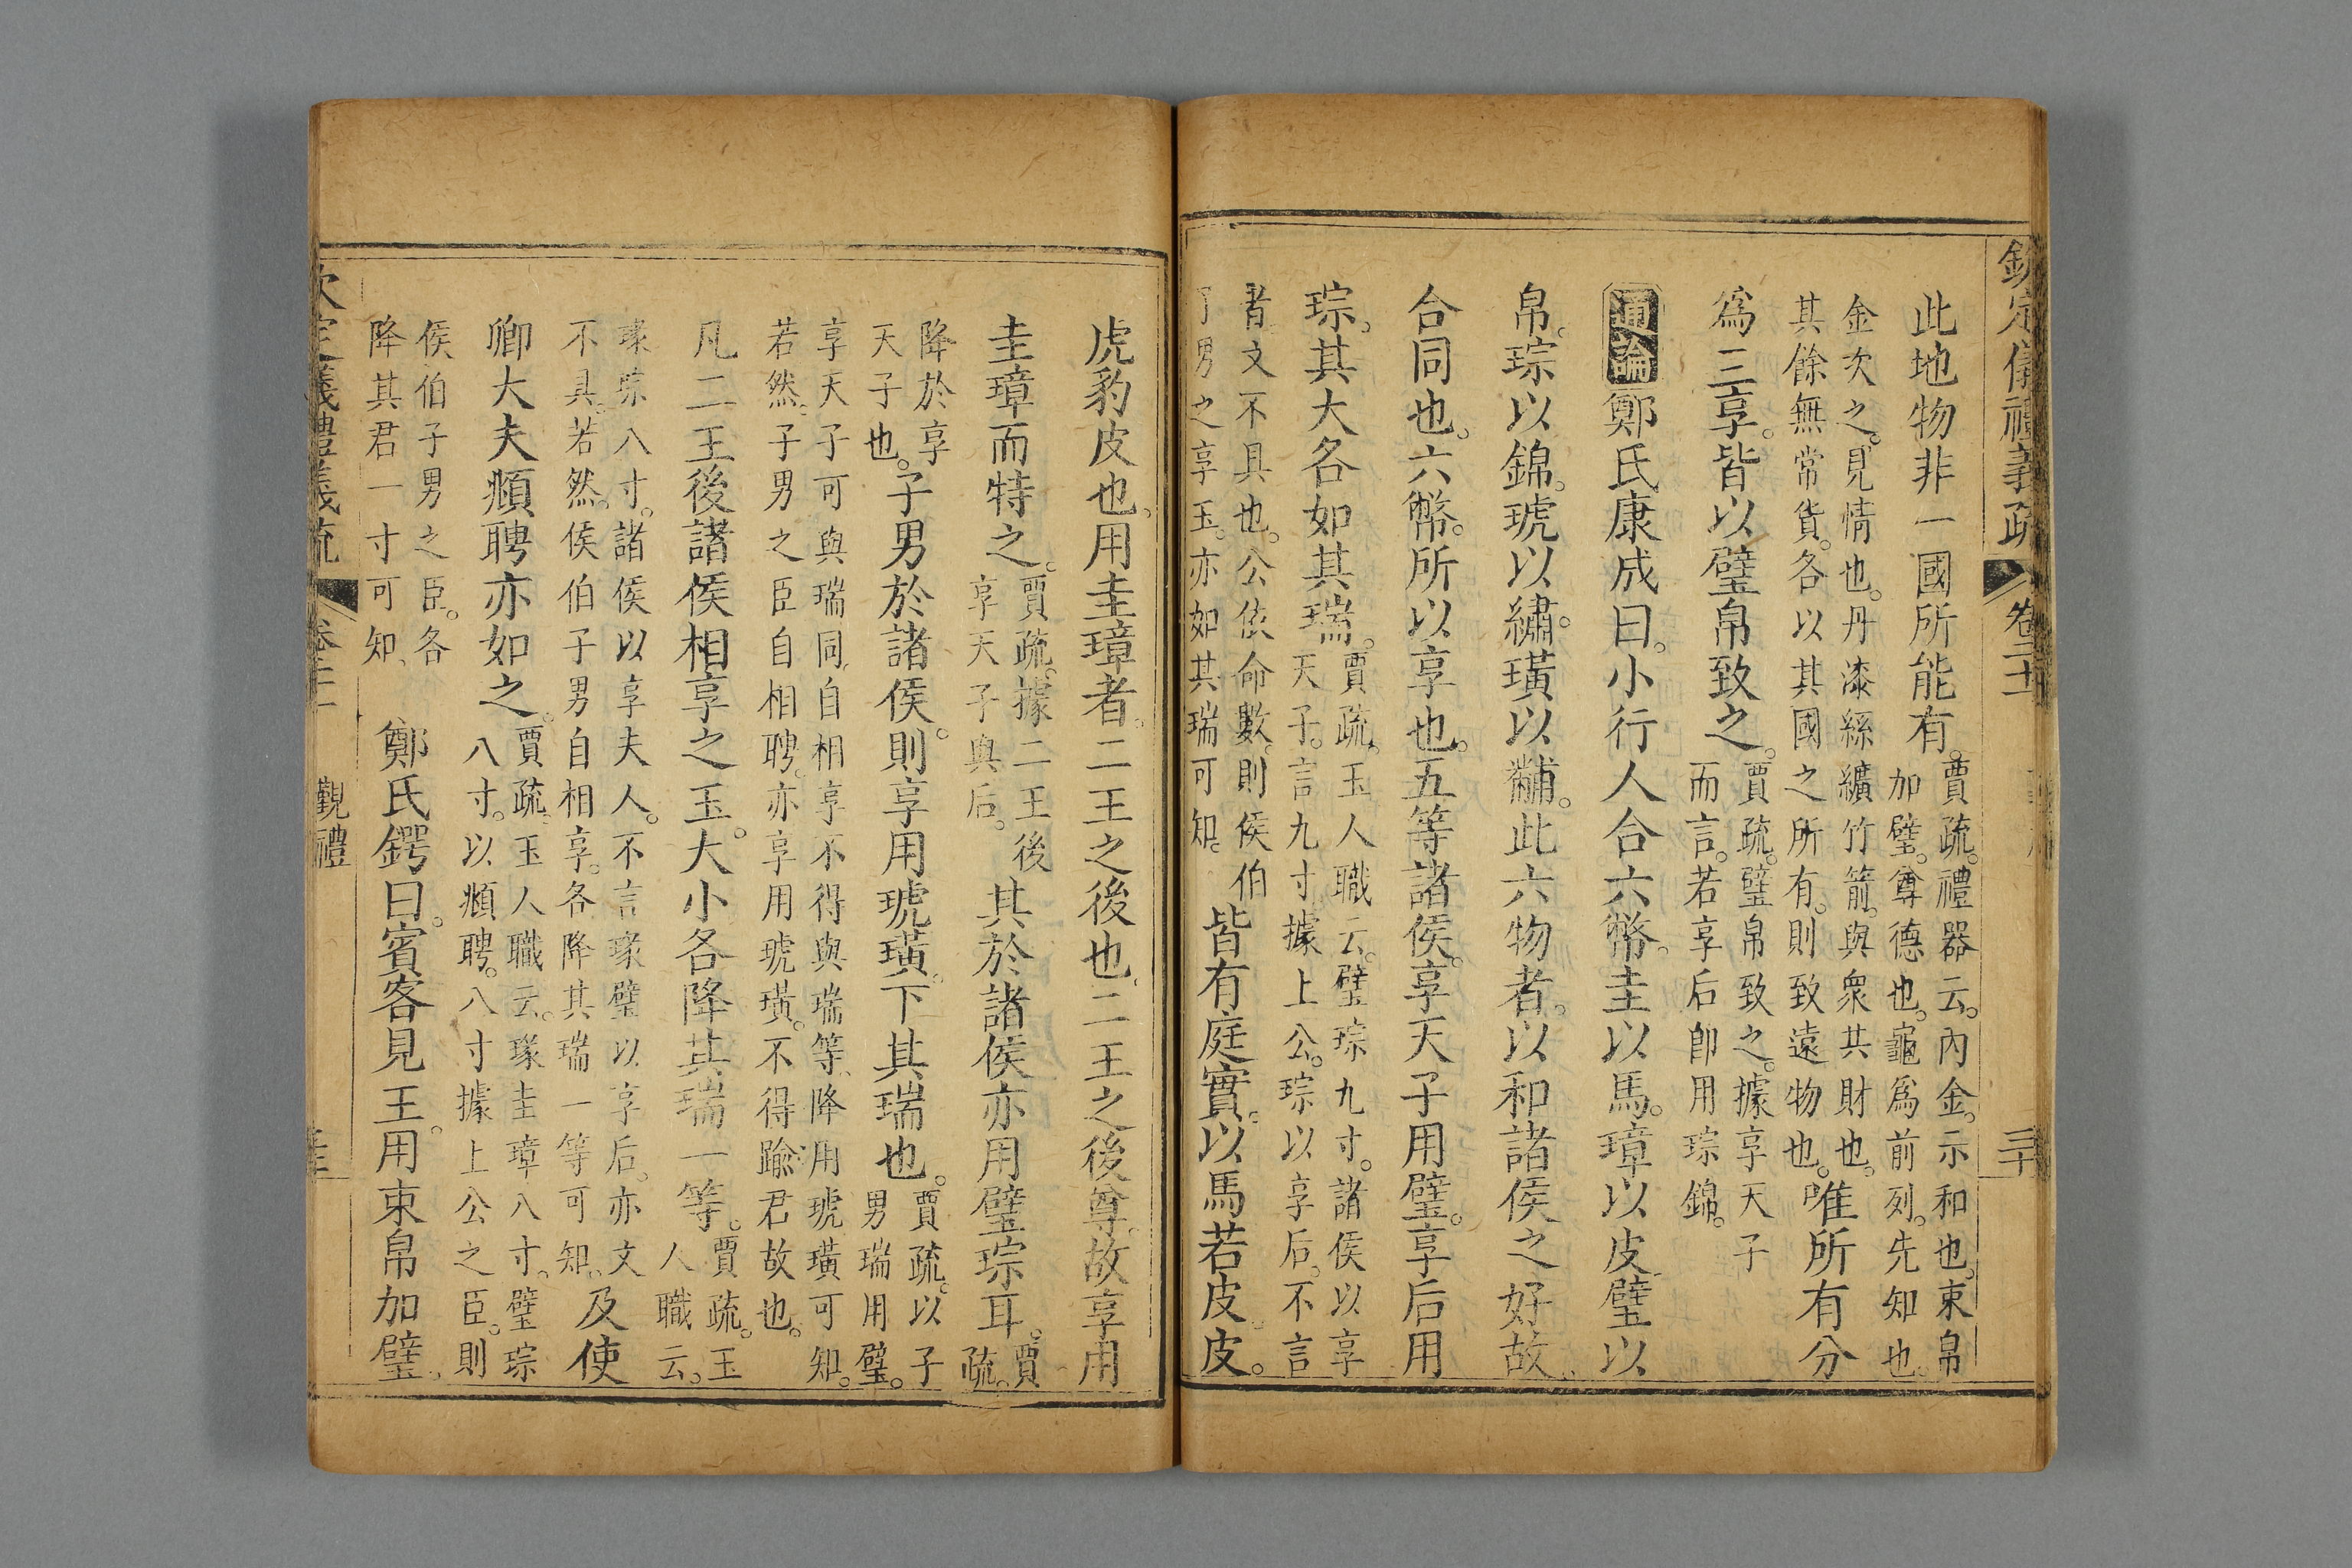 欽定儀禮義疏 卷二十 三十
此地物非一國所能有。
賈疏。禮器云。內金。示和也。束帛
加璧。尊德也。龜爲前列。先知也。
金次之。見情也。丹漆絲纊竹箭。與衆共財也。
其餘無常貨。各以其國之所有。則致遠物也。
唯所有分
爲三享。皆以璧帛致之。
賈疏。璧帛致之。據享天子
而言。若享后卽用琮錦。
通論 鄭氏康成曰。小行人合六幣。圭以馬。璋以皮。璧以
帛。琮以錦。琥以繡。璜以黼。此六物者。以和諸侯之好故。
合同也。六幣。所以享也。五等諸侯。享天子用璧。享后用
琮。其大各如其瑞。
賈疏。玉人職云。璧琮九寸。諸侯以享
天子。言九寸。據上公。琮以享后。不言
者。文不具也。公依命數。則侯伯
子男之享玉。亦如其瑞可知。
皆有庭實。以馬若皮。皮。
虎豹皮也。用圭璋者。二王之後也。二王之後尊。故享用
圭璋而特之。
賈疏。據二王後
享天子與后。
其於諸侯亦用璧琮耳。
賈
疏。
降於享
天子也。
子男於諸侯。則享用琥璜。下其瑞也。
賈疏。以子
男瑞用璧。
享天子可與瑞同。自相享不得與瑞等。降用琥璜可知。
若然。子男之臣自相聘。亦享用琥璜。不得踰君故也。
凡二王後諸侯相享之玉。大小各降其瑞一等。
賈疏。玉
人職云。
瑑琮八寸。諸侯以享夫人。不言瑑璧以享后。亦文
不具。若然。侯伯子男自相享。各降其瑞一等可知。
及使
卿大夫頫聘亦如之。
賈疏。玉人職云。瑑圭璋八寸。璧琮
八寸。以頫聘。八寸據上公之臣。則
侯伯子男之臣。各
降其君一寸可知。
鄭氏鍔曰。賓客見王。用束帛加璧。
覲禮